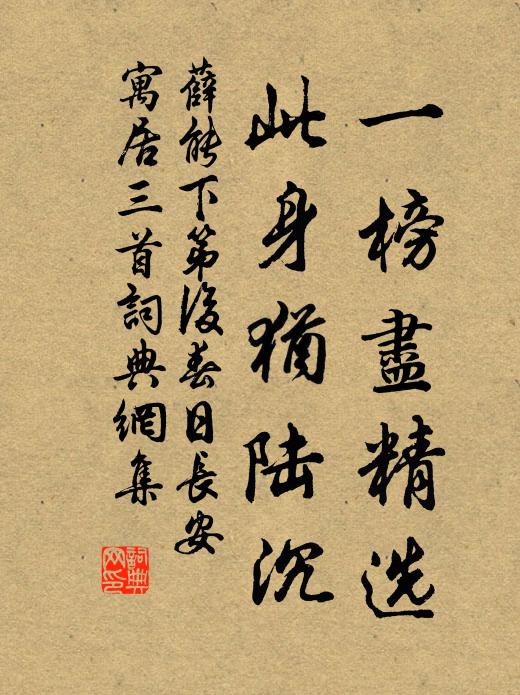 一榜盡精選
此身猶陆沉
薛能下第後春日長安
寓居三首詞典網集
詞典網印